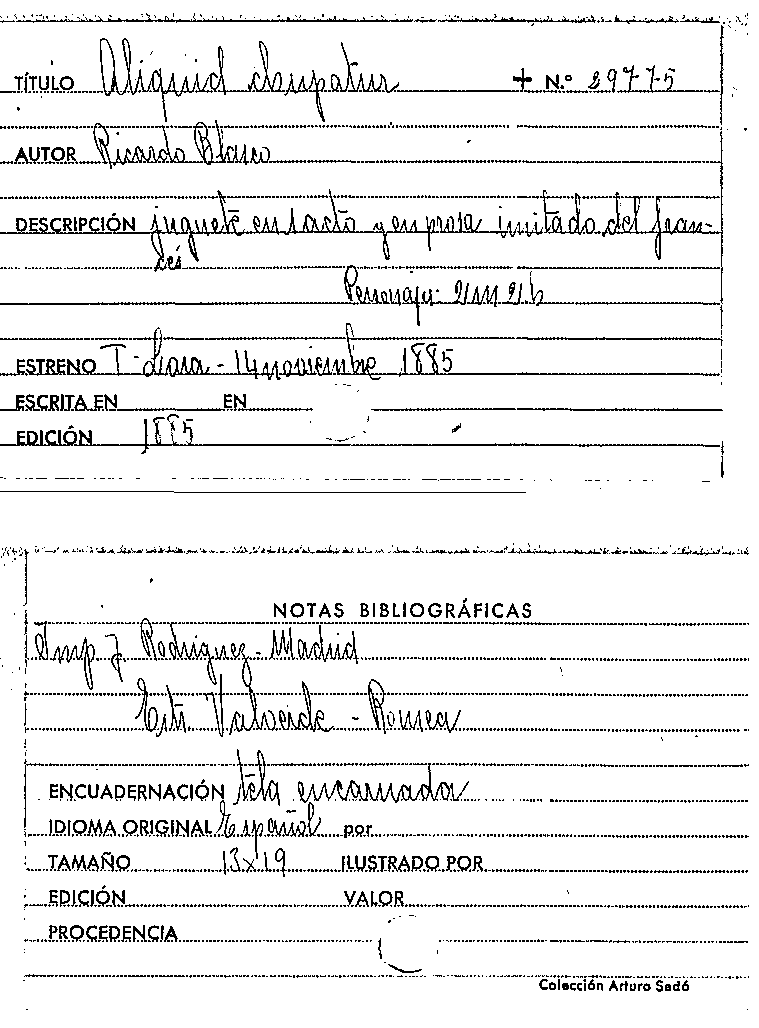 TÍTULO Aliquid chupatur + N.º 29775
AUTOR Ricardo Blasco
DESCRIPCIÓN juguete en 1 acto y en prosa imitado del fran-
cés
Personajes: 2/m 2/h
ESTRENO T- Lara - 14 noviembre 1885
ESCRITA EN EN
EDICIÓN 1885
NOTAS BIBLIOGRÁFICAS
Imp J Rodríguez - Madrid
Estr. Valverde - Romea
ENCUADERNACIÓN tela encarnada
IDIOMA ORIGINAL Español por
TAMAÑO 13x19 ILUSTRADO POR
EDICIÓN VALOR
PROCEDENCIA
Colección Arturo Sedó